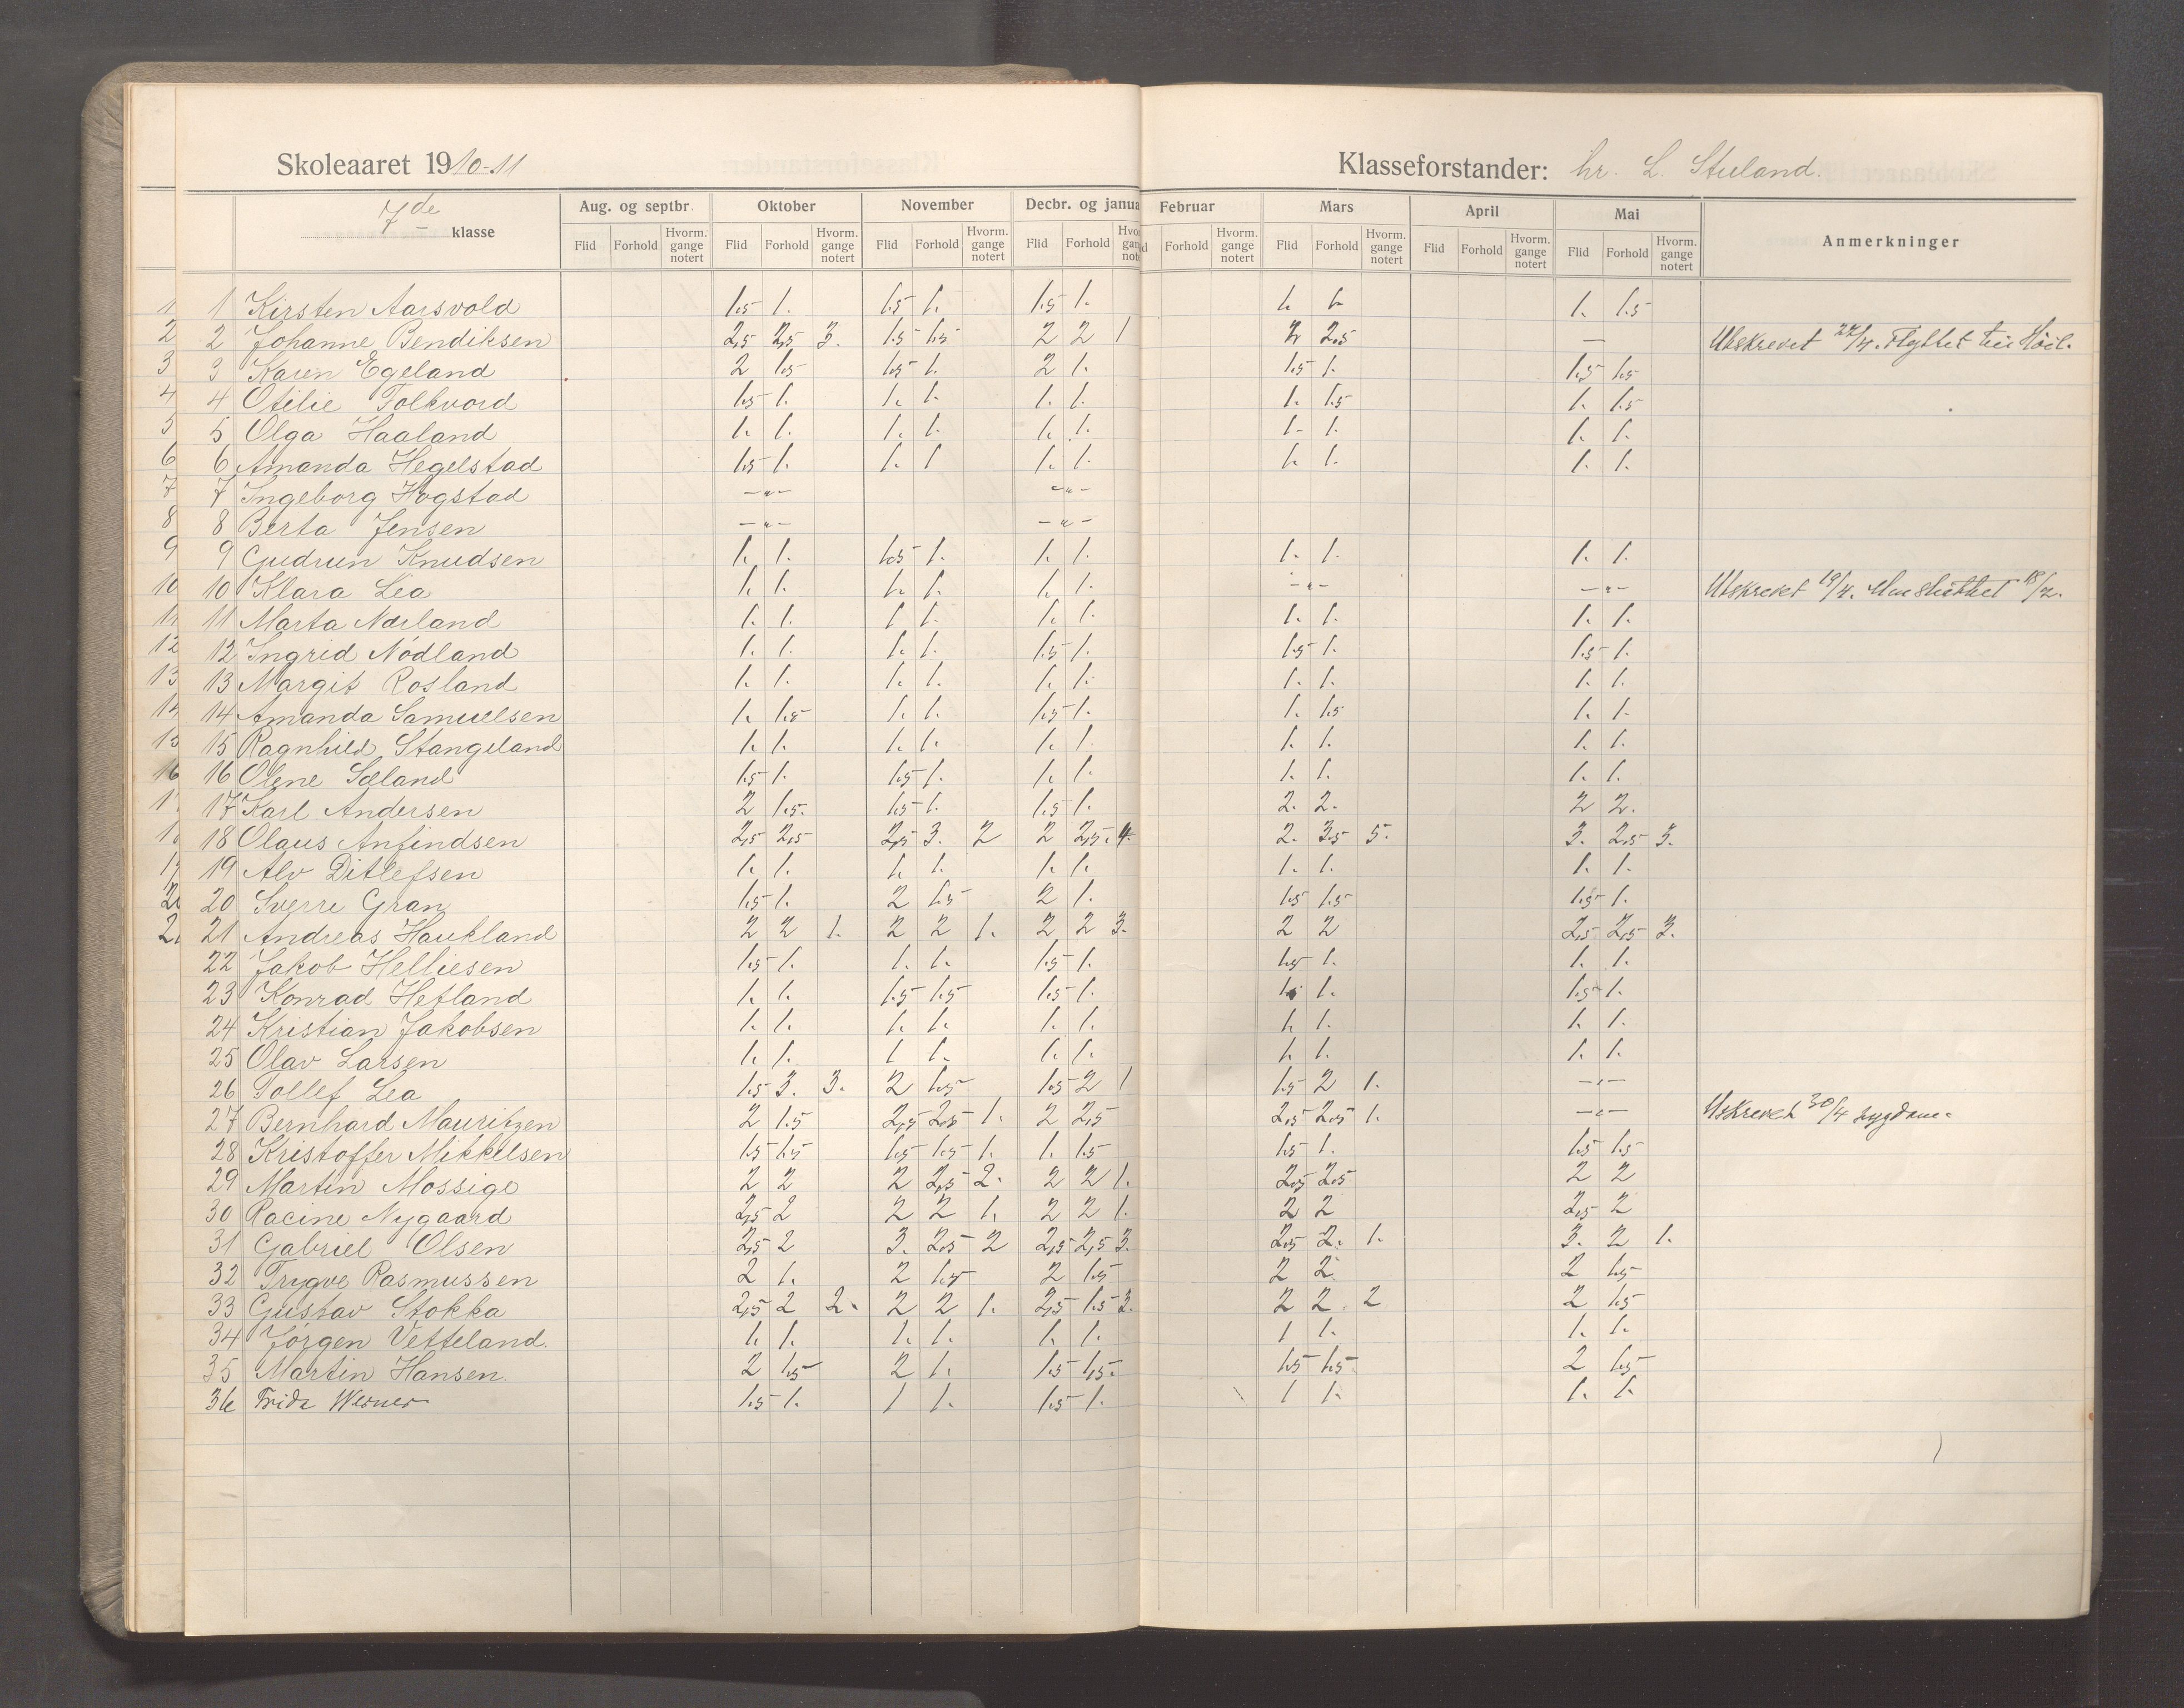 Skoleaaret 1910-11
Klasseforstander: hr. L. Stuland.
7de klasse
Aug. og septbr. Oktober November Decbr. og janua Februar Mars April Mai Anmerkninger
Flid Forhold Hvorm. gange notert Flid Forhold Hvorm. gange notert Flid Forhold Hvorm. gange notert Flid Forhold Forhold Hvorm. gange notert Flid Forhold Hvorm. gange notert Flid Forhold Hvorm. gange notert Flid Forhold Hvorm. gange notert
1 1 Kirsten Aarsvold 1.5 1. 1.5 1. 1.5 1. 1. 1. 1. 1.5
2 2 Johanne Bendiksen 2,5 2,5 3. 1.5 1.5 2 2 1 2 2.5 — Utskrevet 22/4. Flyttet til
3 3 Karen Egeland 2 1.5 1.5 1. 2 1. 1.5 1. 1.5 1.5
4 4 Otelie Folkvord 1.5 1. 1. 1. 1. 1. 1. 1.5 1. 1.5
5 5 Olga Haaland 1. 1. 1. 1. 1. 1. 1. 1. 1. 1.
6 6 Amanda Hegelstad 1.5 1. 1. 1 1. 1. 1. 1. 1. 1.
7 7 Ingeborg Hogstad -"- -"-
8 8 Berta Jensen -"- -"-
9 9 Gudrun Knudsen 1. 1. 1.5 1. 1. 1. 1. 1. 1. 1.
10 10 Klara Lea 1. 1. 1. 1. 1. 1. -"- -"- Utskrevet 19/4.
11 11 Marta Nærland 1. 1. 1 1. 1. 1. 1. 1. 1. 1.
12 12 Ingrid Nödland 1. 1. 1. 1. 1.5 1. 1.5 1. 1.5 1.
13 13 Margit Rosland 1. 1. 1. 1. 1. 1. 1. 1. 1. 1.
14 14 Amanda Samuelsen 1. 1.5 1. 1. 1.5 1. 1. 1.5 1. 1.
15 15 Ragnhild Stangeland 1. 1. 1. 1. 1. 1. 1. 1. 1. 1.
16 16 Olene Sæland 1.5 1. 1.5 1. 1. 1. 1. 1. 1. 1.
17 Karl Andersen 2 1.5. 1.5 1. 1.5 1. 2. 2. 2 2.
18 Olaus Anfindsen 2,5 2,5 2,5 3. 2 2 2,5. 4. 2. 3.5 5. 3. 2.5 3.
19 Alv Ditlefsen 1. 1. 1. 1. 1. 1. 1. 1. 1. 1.
20 Sverre Gran 1.5 1. 2 1.5 2 1. 1.5 1.5 1.5 1.
21 Andreas Haukland 2 2 1. 2 2 1. 2 2 3. 2 2 2,5 2,5 3.
22 Jakob Helliesen 1.5 1. 1. 1. 1.5 1. 1.5 1. 1. 1.
23 Konrad Hetland 1. 1. 1.5 1.5 1.5 1. 1.5 1. 1.5 1.
24 Kristian Jakobsen 1. 1. 1. 1. 1. 1. 1. 1. 1. 1.
25 Olav Larsen 1. 1. 1 1. 1. 1. 1. 1. 1. 1.
26 Tollef Lea 1.5 3. 3. 2 1.5 1.5 2 1 1.5 2 1. -"-
27 Bernhard Mauritzen 2 1.5 2,5 2.5 1. 2 2,5 2.5 2.5 1. -"- Utskrevet 30/4 sygdom.
28 Kristoffer Mikkelsen 1.5 1.5 1.5 1.5 1. 1. 1.5 1.5 1. 1.5 1.5
29 Martin Mossige 2 2 2 2,5 2. 2 2 1. 2.5 2.5 2 2
30 Racine Nygaard 2,5 2 2 2 1. 2 2 1. 2 2 2,5 2
31 Gabriel Olsen 2,5 2 3. 2.5 2 2,5 2,5 3. 2.5 2. 1. 3. 2 1.
32 Trygve Rasmussen 2 1. 2 1.5 2 1.5 2 2. 2 1.5
33 Gustav Stokka 2,5 2 2. 2 2 1. 2,5 1.5 3. 2 2. 2 2 1.5
34 Jörgen Vetteland. 1. 1. 1. 1. 1. 1. 1 1. 1. 1.
35 Martin Hansen. 2 1.5 2 1. 1.5 1,5. 1.5 1.5 2 1.5
36 Frida Werner 1.5 1. 1 1. 1.5 1. 1 1. 1. 1.